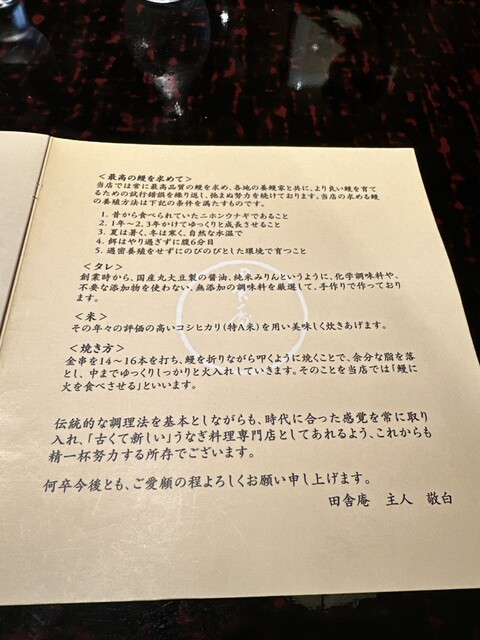 ＜最高の鰻を求めて＞
当店では常に最高品質の鰻を求め、各地の養鰻家と共に、より良い鰻を育て
るための試行錯誤を繰り返し、弛まぬ努力を続けております。当店の求める鰻
の養殖方法は下記の条件を満たすものです。
1. 昔から食べられていたニホンウナギであること
2. 1年～2、3年かけてゆっくりと成長させること
3. 夏は暑く、冬は寒く、自然な水温で
4. 餌はやり過ぎずに腹6分目
5. 過密養殖をせずにのびのびとした環境で育つこと
＜タレ＞
創業時から、国産丸大豆製の醤油、純米みりんというように、化学調味料や、
不要な添加物を使わない、無添加の調味料を厳選して、手作りで作っており
ます。
＜米＞
その年々の評価の高いコシヒカリ(特A米)を用い美味しく炊きあげます。
＜焼き方＞
金串を14～16本を打ち、鰻を折りながら叩くように焼くことで、余分な脂を落
とし、中までゆっくりしっかりと火入れしていきます。そのことを当店では「鰻に
火を食べさせる」といいます。
伝統的な調理法を基本としながらも、時代に合った感覚を常に取り
入れ、「古くて新しい」うなぎ料理専門店としてあれるよう、これからも
精一杯努力する所存でございます。
何卒今後とも、ご愛顧の程よろしくお願い申し上げます。
田舎庵　主人　敬白